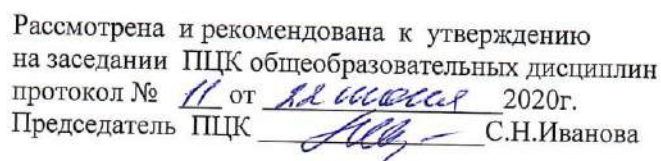 Рассмотрена и рекомендована к утверждению
на заседании ПЦК общеобразовательных дисциплин
протокол № 11 от 22 июня 2020г.
Председатель ПЦК С.Н.Иванова